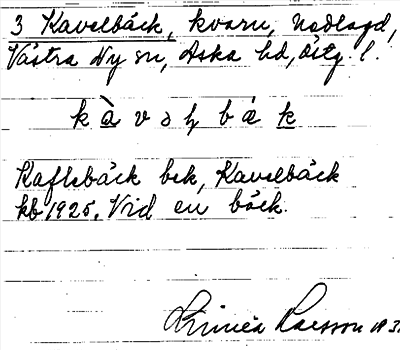 3 Kavelbäck, kvarn, nedlagd,
Västra Ny sn, Aska hd, Östg. l.
k à v ə l b á k
Kaflebäck bek, Kavelbäck
kb 1925. Vid en bäck.
Linnéa Larsson